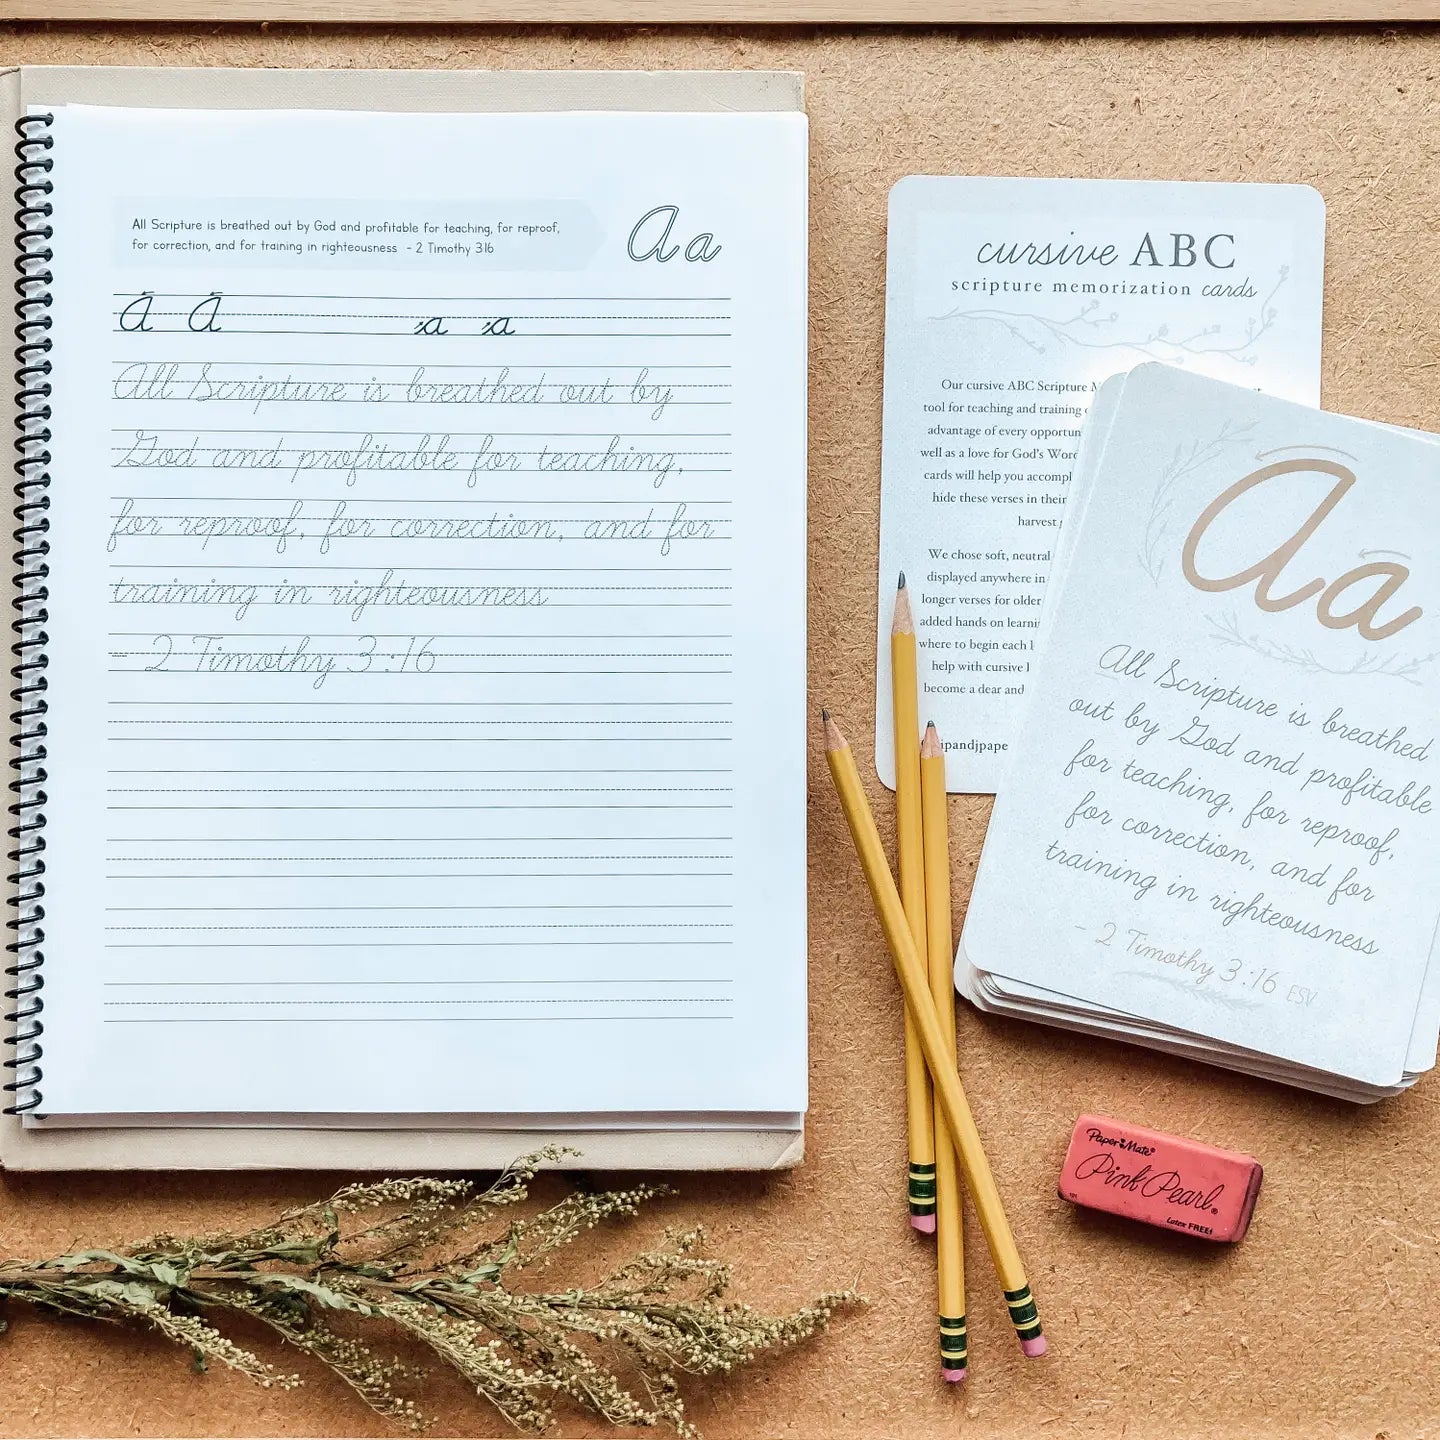 All Scripture is breathed out by God and profitable for teaching, for reproof,
for correction, and for training in righteousness - 2 Timothy 3:16
A a
A A a a
All Scripture is breathed out by
God and profitable for teaching,
for reproof, for correction, and for
training in righteousness
- 2 Timothy 3:16
cursive ABC
scripture memorization cards
Our cursive ABC Scripture
tool for teaching and training
advantage of every
well as a love for God's
cards will help you
hide these verses in their
harvest
We chose soft, neutral
displayed anywhere in
longer verses for older
added hands on
where to begin each
help with cursive
become a dear and
Aa
All Scripture is breathed
out by God and profitable
for teaching, for reproof,
for correction, and for
training in righteousness
- 2 Timothy 3:16 ESV
Paper Mate®
Pink Pearl®
Latex FREE!